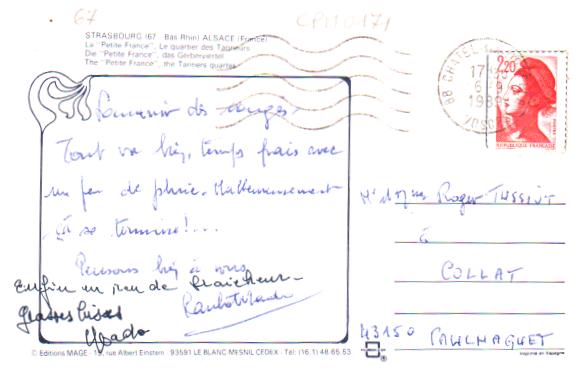 67
CPM 0171
STRASBOURG (67 Bas Rhin) ALSACE (France)
La "Petite France", Le quartier des Tanneurs
Die "Petite France", das Gerberviertel
The "Petite France", the Tanners quarter
88 CHATEL
17
6-9
1989
VOSGES
2,20
REPUBLIQUE FRANÇAISE
Souvenir des
Tout va bien, temps frais avec
un peu de pluie. Malheureusement
Ça se termine!...
Pensons bien à vous
Enfin un peu de fraicheur
Grosses bises
Mr et Mme Roger TISSIOT
à
COLLAT
43150 PAULHAGUET
© Editions MAGE - 15, rue Albert Einstein - 93591 LE BLANC MESNIL CEDEX - Tél: (16.1) 48 65 53
Imprimé en Espagne